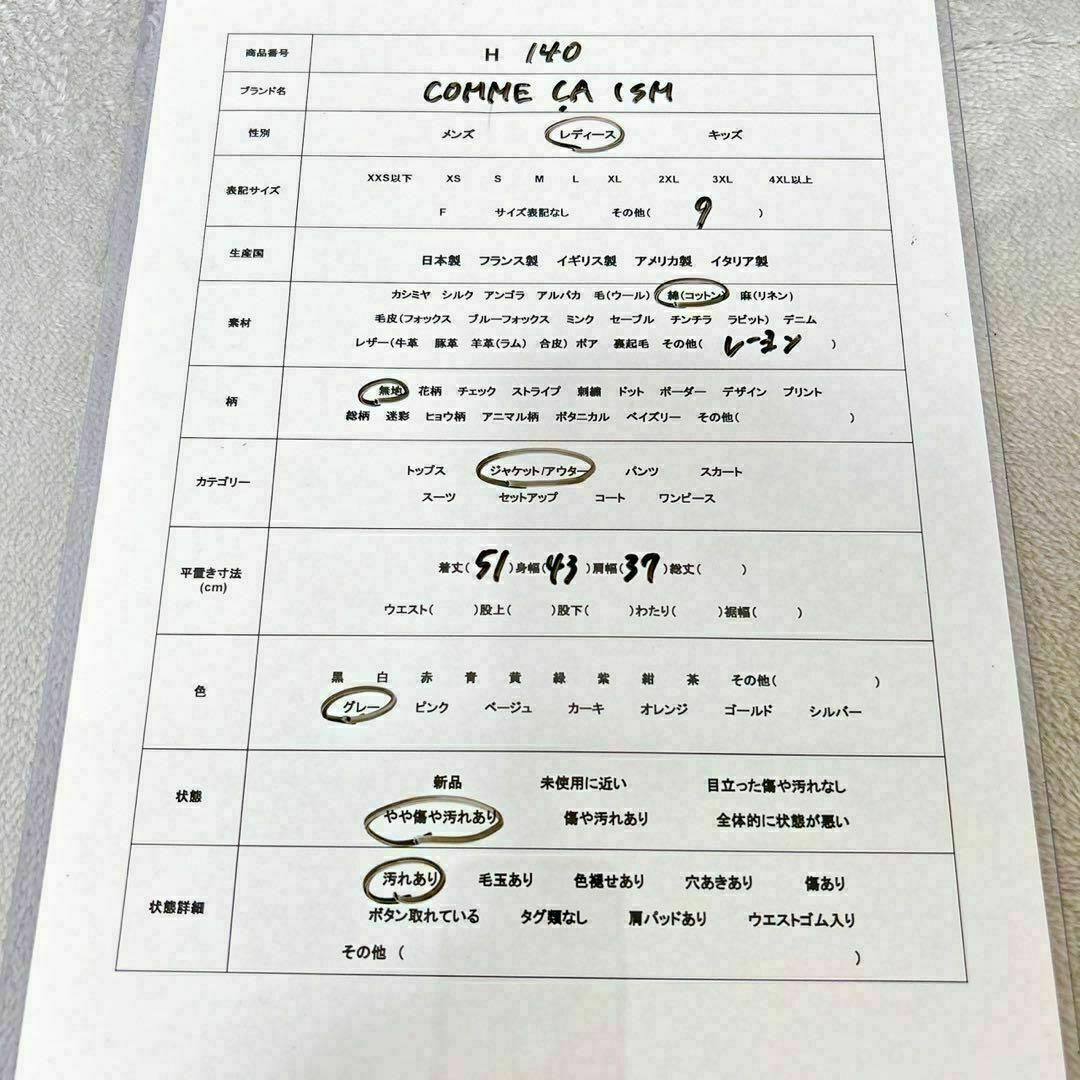 商品番号 H 140
ブランド名 COMME ÇA ISM
性別 メンズ レディース キッズ
XXS以下 XS S M L XL 2XL 3XL 4XL以上
表記サイズ
F サイズ表記なし その他( 9 )
生産国 日本製 フランス製 イギリス製 アメリカ製 イタリア製
カシミヤ シルク アンゴラ アルパカ 毛(ウール) 綿(コットン) 麻(リネン)
素材 毛皮(フォックス ブルーフォックス ミンク セーブル チンチラ ラビット) デニム
レザー(牛革 豚革 羊革(ラム) 合皮) ボア 裏起毛 その他( レーヨン )
柄 無地 花柄 チェック ストライプ 刺繍 ドット ボーダー デザイン プリント
総柄 迷彩 ヒョウ柄 アニマル柄 ボタニカル ペイズリー その他( )
カテゴリー トップス ジャケット/アウター パンツ スカート
スーツ セットアップ コート ワンピース
平置き寸法 着丈( 51 )身幅( 43 )肩幅( 37 )総丈( )
(cm)
ウエスト( )股上( )股下( )わたり( )裾幅( )
色 黒 白 赤 青 黄 緑 紫 紺 茶 その他( )
グレー ピンク ベージュ カーキ オレンジ ゴールド シルバー
状態 新品 未使用に近い 目立った傷や汚れなし
やや傷や汚れあり 傷や汚れあり 全体的に状態が悪い
状態詳細 汚れあり 毛玉あり 色褪せあり 穴あきあり 傷あり
ボタン取れている タグ類なし 肩パッドあり ウエストゴム入り
その他 ( )